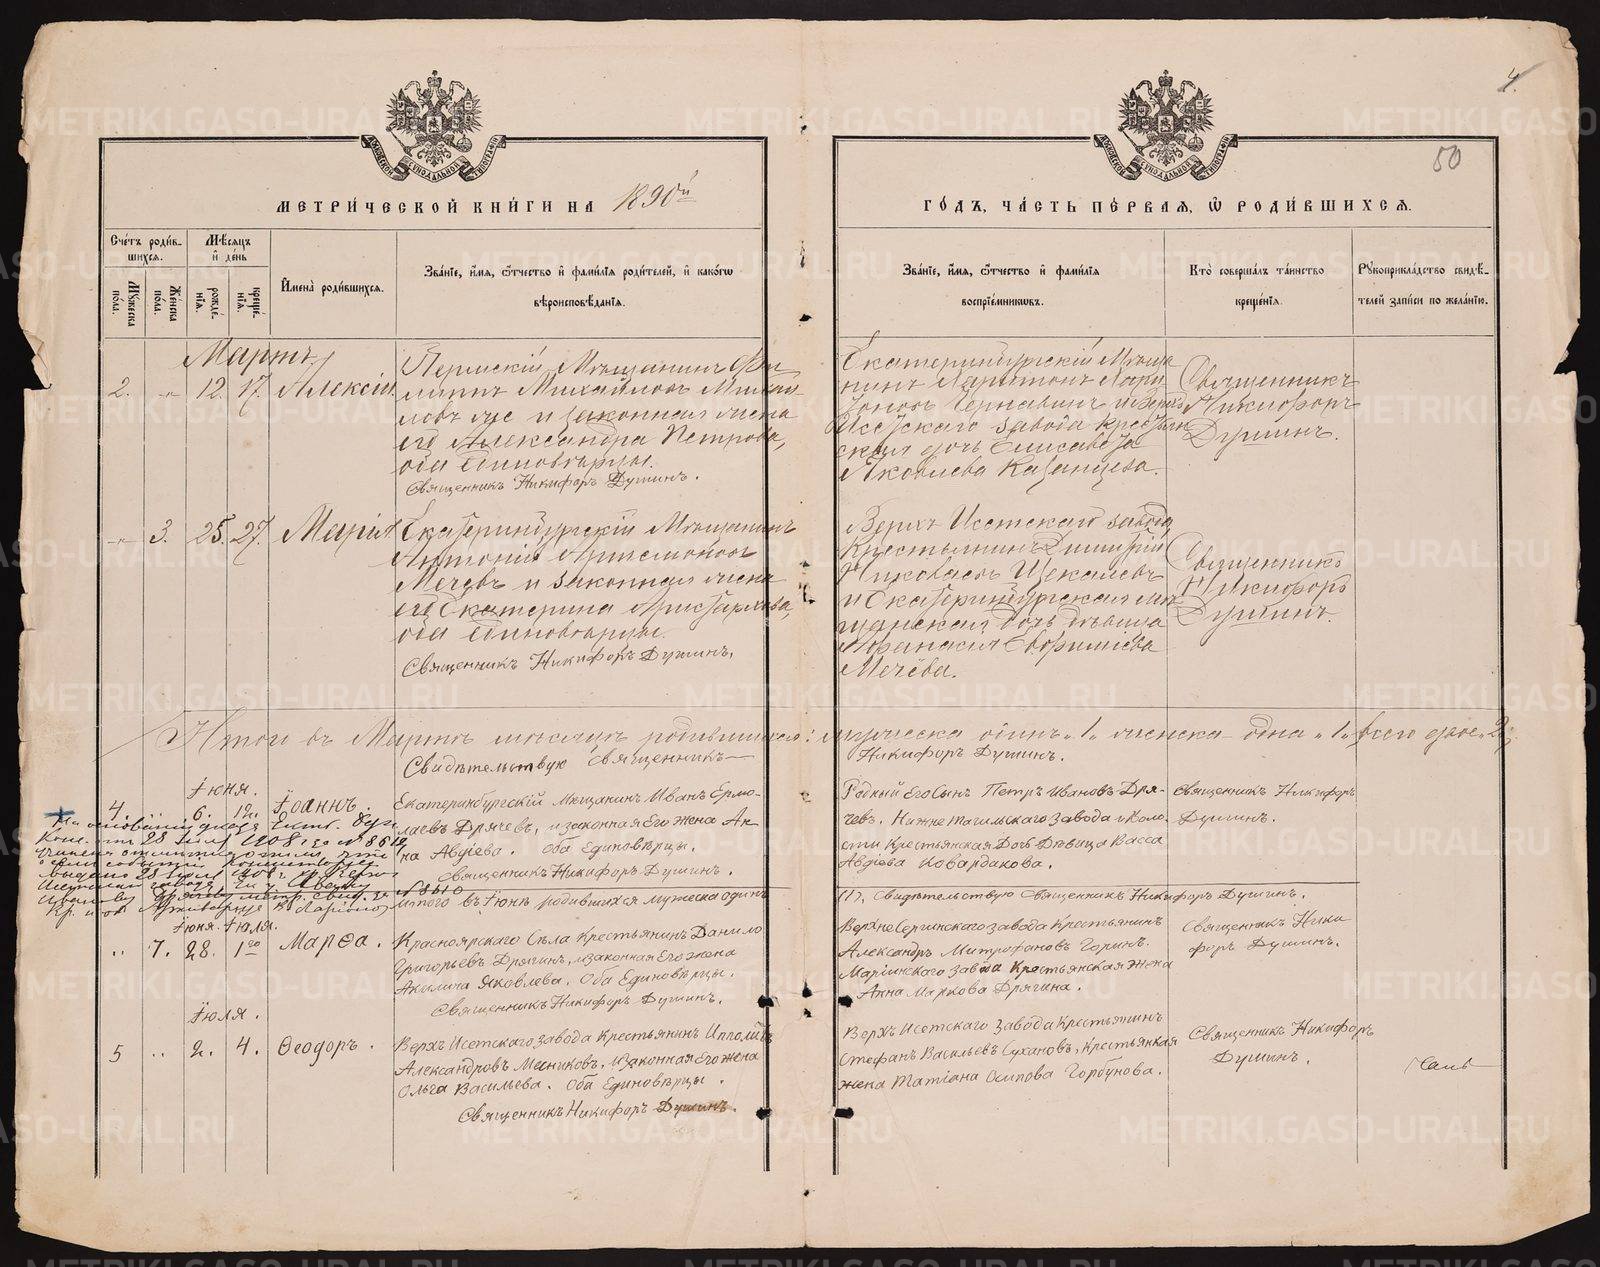 4.
50
МЕТРИ́ЧЕСКОЙ КНИ́ГИ НА 1890й
ГО́ДЪ, ЧА́СТЬ ПЕ́РВАЯ, Ѡ РОДИ́ВШИХСЯ.
Сче́тъ роди́в-
шихся.
Мѣ́сяцъ
и҆ де́нь
Мꙋ́жеска
по́ла.
Же́нска
по́ла.
рожде́-
нїя.
креще́-
нїя.
И҆мена̀ роди́вшихся.
Зва́нїе, и҆́мя, ѻ҆́тчество и҆ фами́лїя роди́телей, и҆ како́гѡ
вѣроисповѣ́данїя.
Зва́нїе, и҆́мя, ѻ҆́тчество и҆ фами́лїя
воспрїе́мникѡвъ.
Кто̀ соверша́лъ та́инство
креще́нїя.
Рꙋкоприкла́дство свидѣ́-
телей за́писи по жела́нїю.
Мартъ
2. „ 12. 17. Алексій.
Пермскій Мѣщанинъ Фи-
липпъ Михайловъ Михай-
ловъ же и законная жена
его Александра Петрова,
оба Единовѣрцы.
Священникъ Никифоръ Душинъ.
Екатеринбургскій Мѣща-
нинъ Харитонъ
Чернавинъ и Верхъ
Исетскаго завода крестьян-
ская дочь Елисавета
Яковлева Казанцева.
Священникъ
Никифоръ
Душинъ.
„ 3. 25. 27. Марія
Екатеринбургскій Мѣщанинъ
Антоній Артемоновъ
Мечевъ и законная жена
его Екатерина Аристархова,
оба Единовѣрцы.
Священникъ Никифоръ Душинъ.
Верхъ Исетскаго завода
Крестьянинъ Димитрій
Николаевъ Щекалевъ
и Екатеринбургская мѣ-
щанская дочь дѣвица
Афанасія Евфимиева
Мечева.
Священникъ
Никифоръ
Душинъ.
Итого въ Мартѣ мѣсяцѣ родившихся: мужеска одинъ „1„ женска одна „1„ всего двое „2„
Свидѣтельствую Священникъ
Никифоръ Душинъ.
Іюня.
4. .. 6. 12. Іоаннъ.
Екатеринбургскій Мѣщанинъ Иванъ Ермо-
лаевъ Дрячевъ, и законная Его жена Ан-
на Авдіева. Оба Единовѣрцы.
Священникъ Никифоръ Душинъ.
Родный Его Сынъ Петръ Ивановъ Дря-
чевъ. Нижнетагильскаго Завода и Воло-
сти Крестьянская Дочь Дѣвица Васса
Авдіева Ковардакова.
Священникъ Никифоръ
Душинъ.
На основаніи указа Екат. Дух.
Конс. отъ 28 Іюля 1908 г за № 8612
№ 8610
Итого въ Іюнѣ родившихся мужеска одинъ
(1), Свидѣтельствую Священникъ Никифоръ Душинъ.
Іюня. Іюля.
.. 7. 28. 1го Марѳа.
Красноярскаго Села Крестьянинъ Данило
Григорьевъ Дрягинъ, и законная Его жена
Акилина Яковлева. Оба Единовѣрцы.
Священникъ Никифоръ Душинъ.
Верхне Сергинскаго завода Крестьянинъ
Александръ Митрофановъ Горинъ.
Маріинскаго Завода Крестьянская жена
Анна Маркова Дрягина.
Священникъ Ники-
форъ Душинъ.
Іюля.
5 .. 2. 4. Ѳеодоръ.
Верхъ Исетскаго завода Крестьянинъ Ипполитъ
Александровъ Мѣсниковъ, и законная Его жена
Ольга Васильева. Оба Единовѣрцы.
Священникъ Никифоръ Душинъ.
Верхъ Исетскаго Завода Крестьянинъ
Стефанъ Васильевъ Сухановъ, Крестьянкая
жена Татіана Осипова Горбунова.
Священникъ Никифоръ
Душинъ.